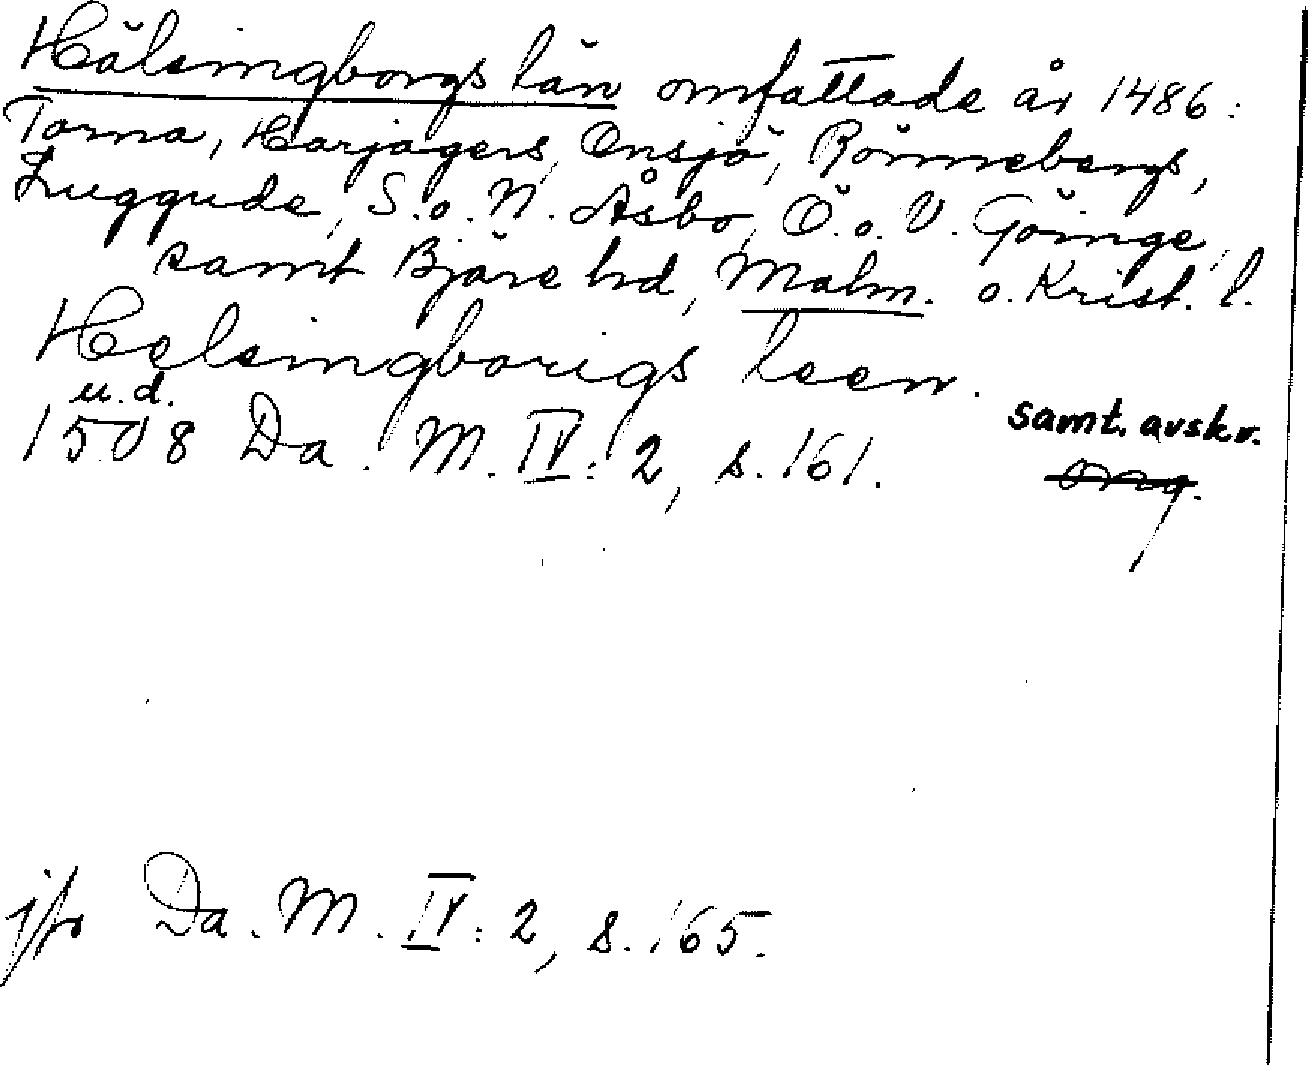 Hälsingborgs län omfattade år 1486:
Torna, Harjagers, Onsjö, Rönnebergs,
Luggude, S. o. N. Åsbo, Ö. o. V. Göinge,
samt Bjäre hd, Malm. o. Krist. l.
Helsingborigs leen.
u. d.
1508 Da. M. IV: 2, s. 161.
samt. avskr.
orig.
jfr Da. M. IV: 2, s. 165.